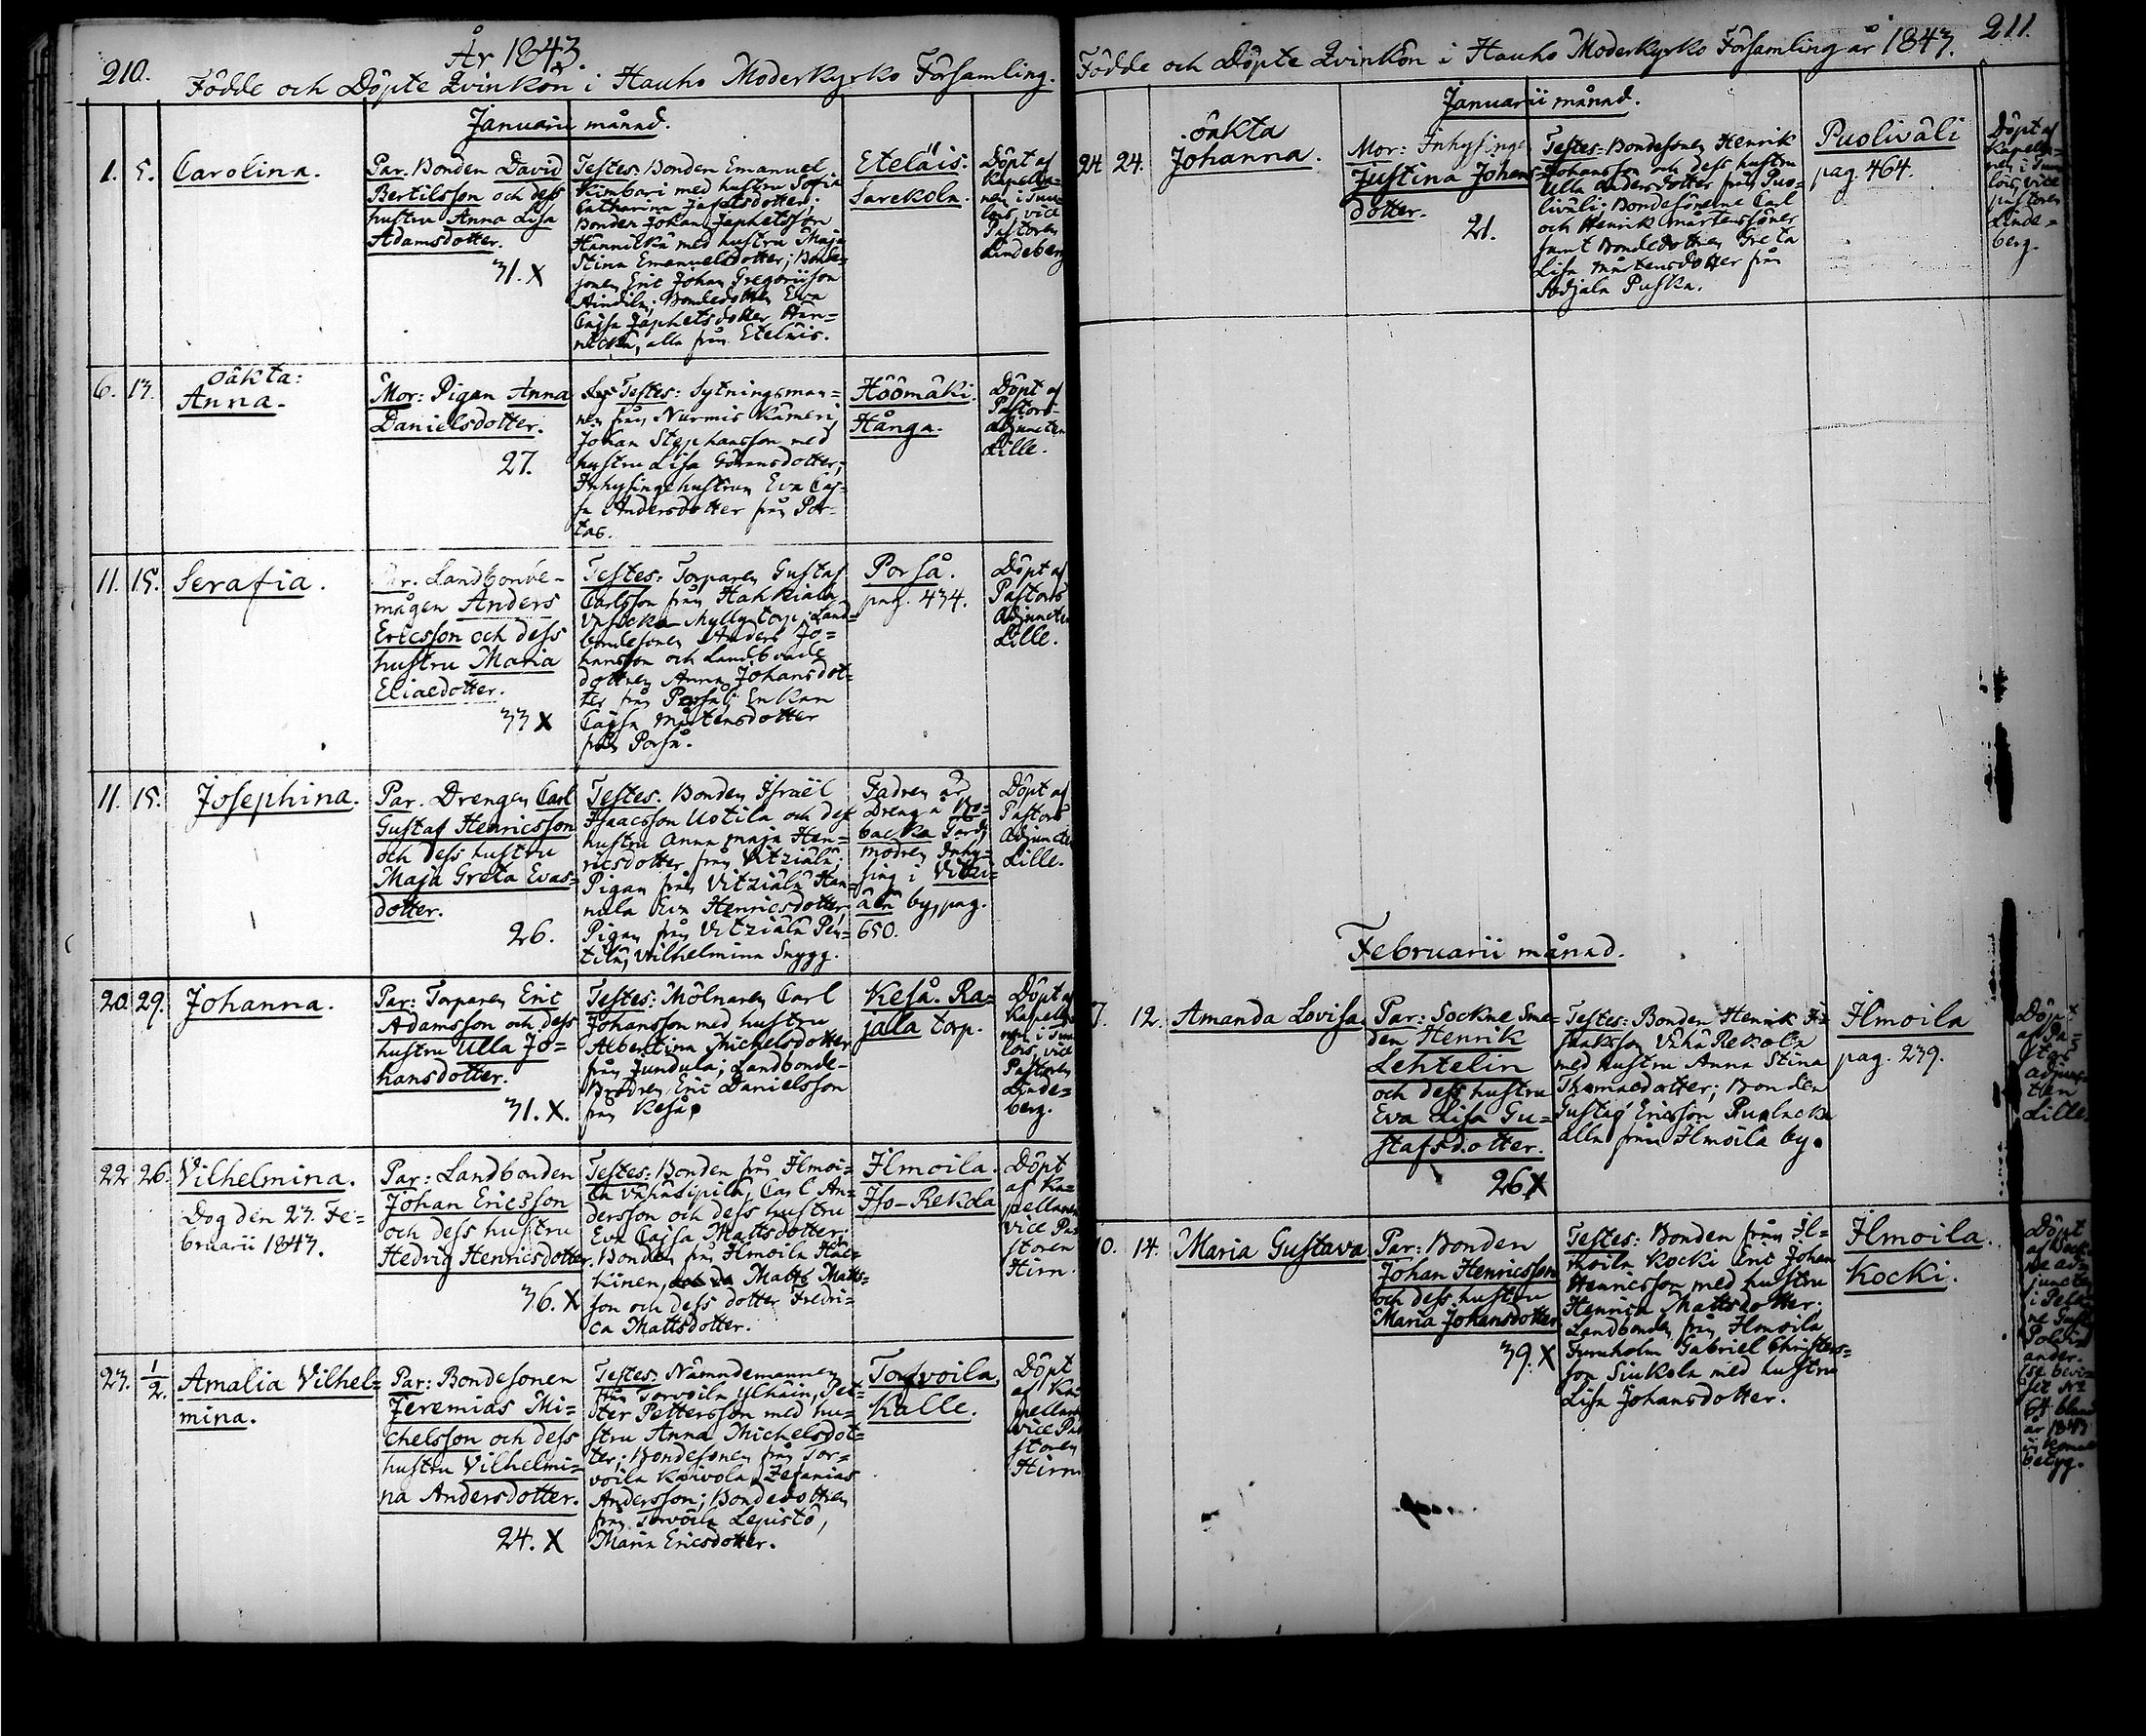 210.
År 1843.
Födde och Döpte Qvinkön i Hauho Moderkyrko Församling.
Januarii månad.
1. 5. Carolina.
Par. Bonden David
Bertilsson och dess
hustru Anna Lisa
Adamsdotter.
31. X
Testes: Bonden Emanuel
Kimbari med hustru Sofia
Catharina
Bonden Johan Japhetsson
Hannicka med hustru Maja
Stina Emanuelsdotter; Bonde-
sonen Eric Johan Gregoriison
Bondedottren Eva
Cajsa Japhetsdotter Han-
nicka, alla från Eteläis.
Eteläis:
Sarekola.
Döpt af
Kapella-
nen i Tuu-
lois, vice
Pastoren
Lindeberg
6. 13. oäkta:
Anna.
Mor: Pigan Anna
Danielsdotter.
27.
Testes: Sytningsman-
nen från Nurmis Kämeri,
Johan Stephansson med
hustru Lisa Göransdotter;
Inhysingehustrun Eva Caj-
sa Andersdotter från Por-
tas.
Höömäki.
Hånga.
Döpt af
Pastors-
adjuncten
Lille.
11. 15. Serafia.
Par. Landbonde-
mågen Anders
Ericsson och dess
hustru Maria
Eliaedotter.
33 X
Testes: Torparen Gustaf
Carlsson från Hahkiala
Mylly torp; Land-
bondesonen Anders Jo-
hansson och Landbonde
dottren Anna Johansdot-
ter från Porså; Enkan
Cajsa Mårtensdotter
från Porså.
Porså.
pag. 434.
Döpt af
Pastors
Adjuncten
Lille.
11. 15. Josephina.
Par. Drengen Carl
Gustaf Henricsson
och dess hustru
Maja Greta Evas-
dotter.
26.
Testes. Bonden Israël
Isaacsson Uotila och dess
hustru Anna Maja Hen-
ricsdotter från Vitziälä;
Pigan från Vitziälä Han-
nula Eva Henricsdotter,
Pigan från Vitziälä Pen-
tilä, Wilhelmina Snygg.
Fadren är
Dreng å Bo-
backa Gård,
modren Inhy-
sing i Vitzi-
älä by, pag.
650.
Döpt af
Pastors
Adjuncten
Lille.
20. 29. Johanna.
Par: Torparen Eric
Adamsson och dess
hustru Ulla Jo-
hansdotter.
31. X.
Testes: Mölnaren Carl
Johansson med hustru
Albertina Michelsdotter
från Jundula; Landbonde-
Brodren Eric Danielsson
från Keså.
Keså. Ra-
jala torp.
Döpt af
Kapella-
nen i Tuu-
lois, vice
Pastoren
Linde-
berg.
22. 26. Vilhelmina.
Dog den 23. Fe-
bruarii 1843.
Par: Landbonden
Johan Ericsson
och dess hustru
Hedvig Henricsdotter.
36. X
Testes: Bonden från Ilmoi-
la Vähäsipilä, Carl An-
dersson och dess hustru
Eva Cajsa Mattsdotter;
Bonden från Ilmoila Häk-
kinen, Matts Matts-
son och dess dotter Fredri-
ca Mattsdotter.
Ilmoila.
Iso-Rekola
Döpt
af Ka-
pellanen
vice Pa-
storen
Hirn.
23. 1/2. Amalia Vilhel-
mina.
Par: Bondesonen
Jeremias Mi-
chelsson och dess
hustru Vilhelmi-
na Andersdotter.
24. X
Testes: Nämndemannen
från Torvoila Ylhäin, Pet-
ter Pettersson med hu-
stru Anna Michelsdot-
ter; Bondesonen från Tor-
voila Kaivola, Zefanias
Andersson; Bondedottren
från Torvoila Lepistö,
Maria Ericsdotter.
Torfvoila
Kalle.
Döpt
af Ka-
pellan
vice Pa-
storen
Hirn
211.
Födde och Döpte Qvinkön i Hauho Moderkyrko Församling år 1843.
Januarii månad.
24 24. oäkta
Johanna.
Mor: Inhysinge
Justina Johans-
dotter.
21.
Testes: Bondesonen Henrik
Johansson och dess hustru
Ulla Andersdotter från Puo-
liväli; Bondesönerne Carl
och Henrik Mårtenssöner
samt Bondedottren Greta
Lisa Mårtensdotter från
Sodjala Puska.
Puoliväli
pag. 464.
Döpt af
Kapella-
nen i Tuu-
lois, vice
pastoren
Linde-
berg.
Februarii månad.
7. 12. Amanda Lovisa.
Par: Sockne Sme-
den Henrik
Lehtelin
och dess hustru
Eva Lisa Gu-
stafsdotter.
26 X
Testes: Bonden Henrik
Isaksson Vähä Rekola
med hustru Anna Stina
Thomaedotter; Bonden
Gustaf Ericsson
alla från Ilmoila by.
Ilmoila
pag. 239.
Döpt
af Pa-
stors
adjunc-
ten
Lille.
10. 14. Maria Gustava
Par: Bonden
Johan Henricsson
och dess hustru
Maria Johansdotter
39. X
Testes: Bonden från Il-
moila Kocki Eric Johan
Henricsson med hustru
Henrica Mattsdotter;
Landbonden från Ilmoila
Furuholm Gabriel Christers-
son Siukola med hustru
Lisa Johansdotter.
Ilmoila.
Kocki.
Döpt
af Sock-
ne ad-
juncten
i Pelke-
ne Gust.
Polvi-
ander.
(se bevi-
set No
64 bland
år 1843
in komne
betyg.